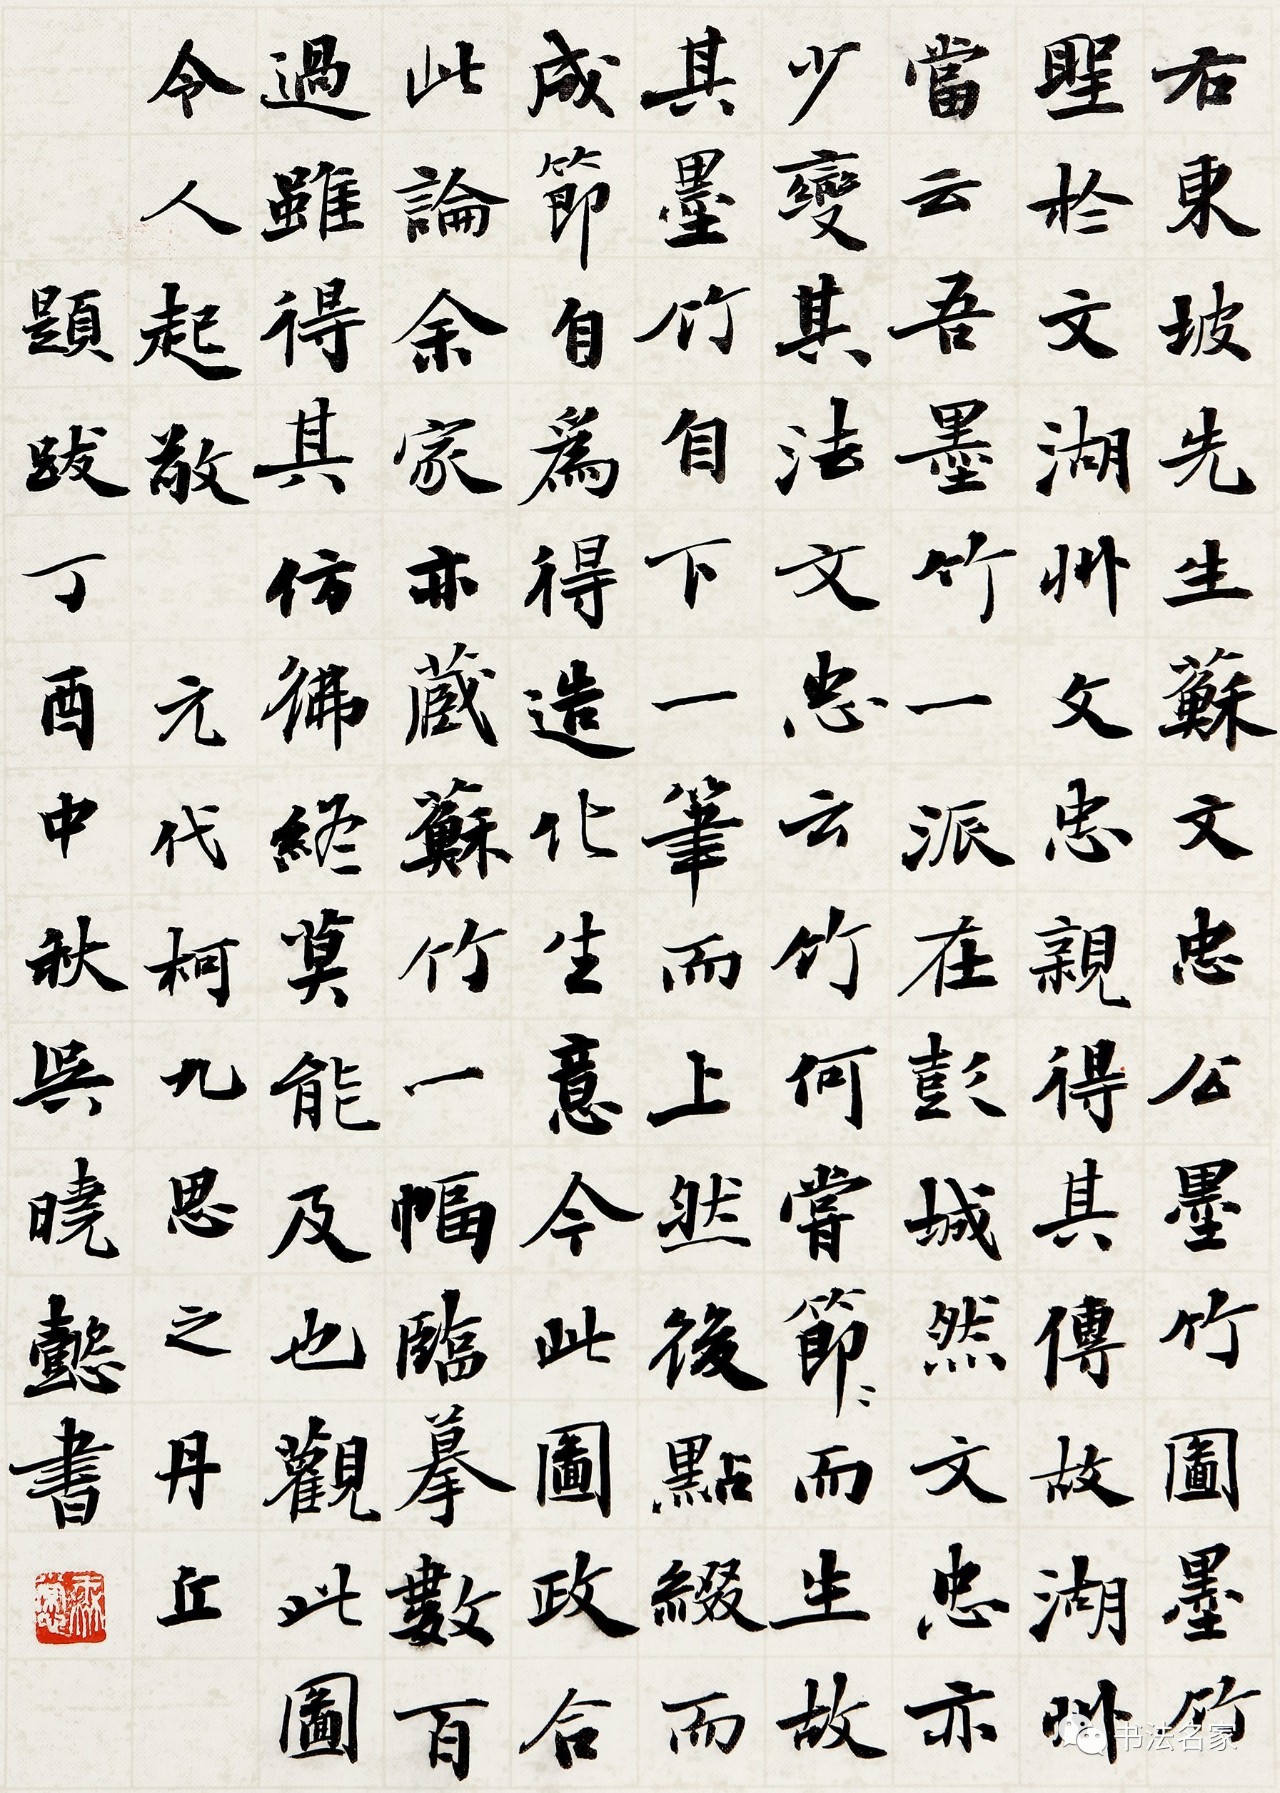 右東坡先生蘇文忠公墨竹圖墨竹
聖於文湖州文忠親得其傳故湖州
當云吾墨竹一派在彭城然文忠亦
少變其法文忠云竹何嘗節〻而生故
其墨竹自下一筆而上然後點綴而
成節自爲得造化生意今此圖政合
此論余家亦藏蘇竹一幅臨摹數百
過雖得其仿彿終莫能及也觀此圖
令人起敬 元代柯九思之丹丘
題跋丁酉中秋吳曉懿書
书法名家